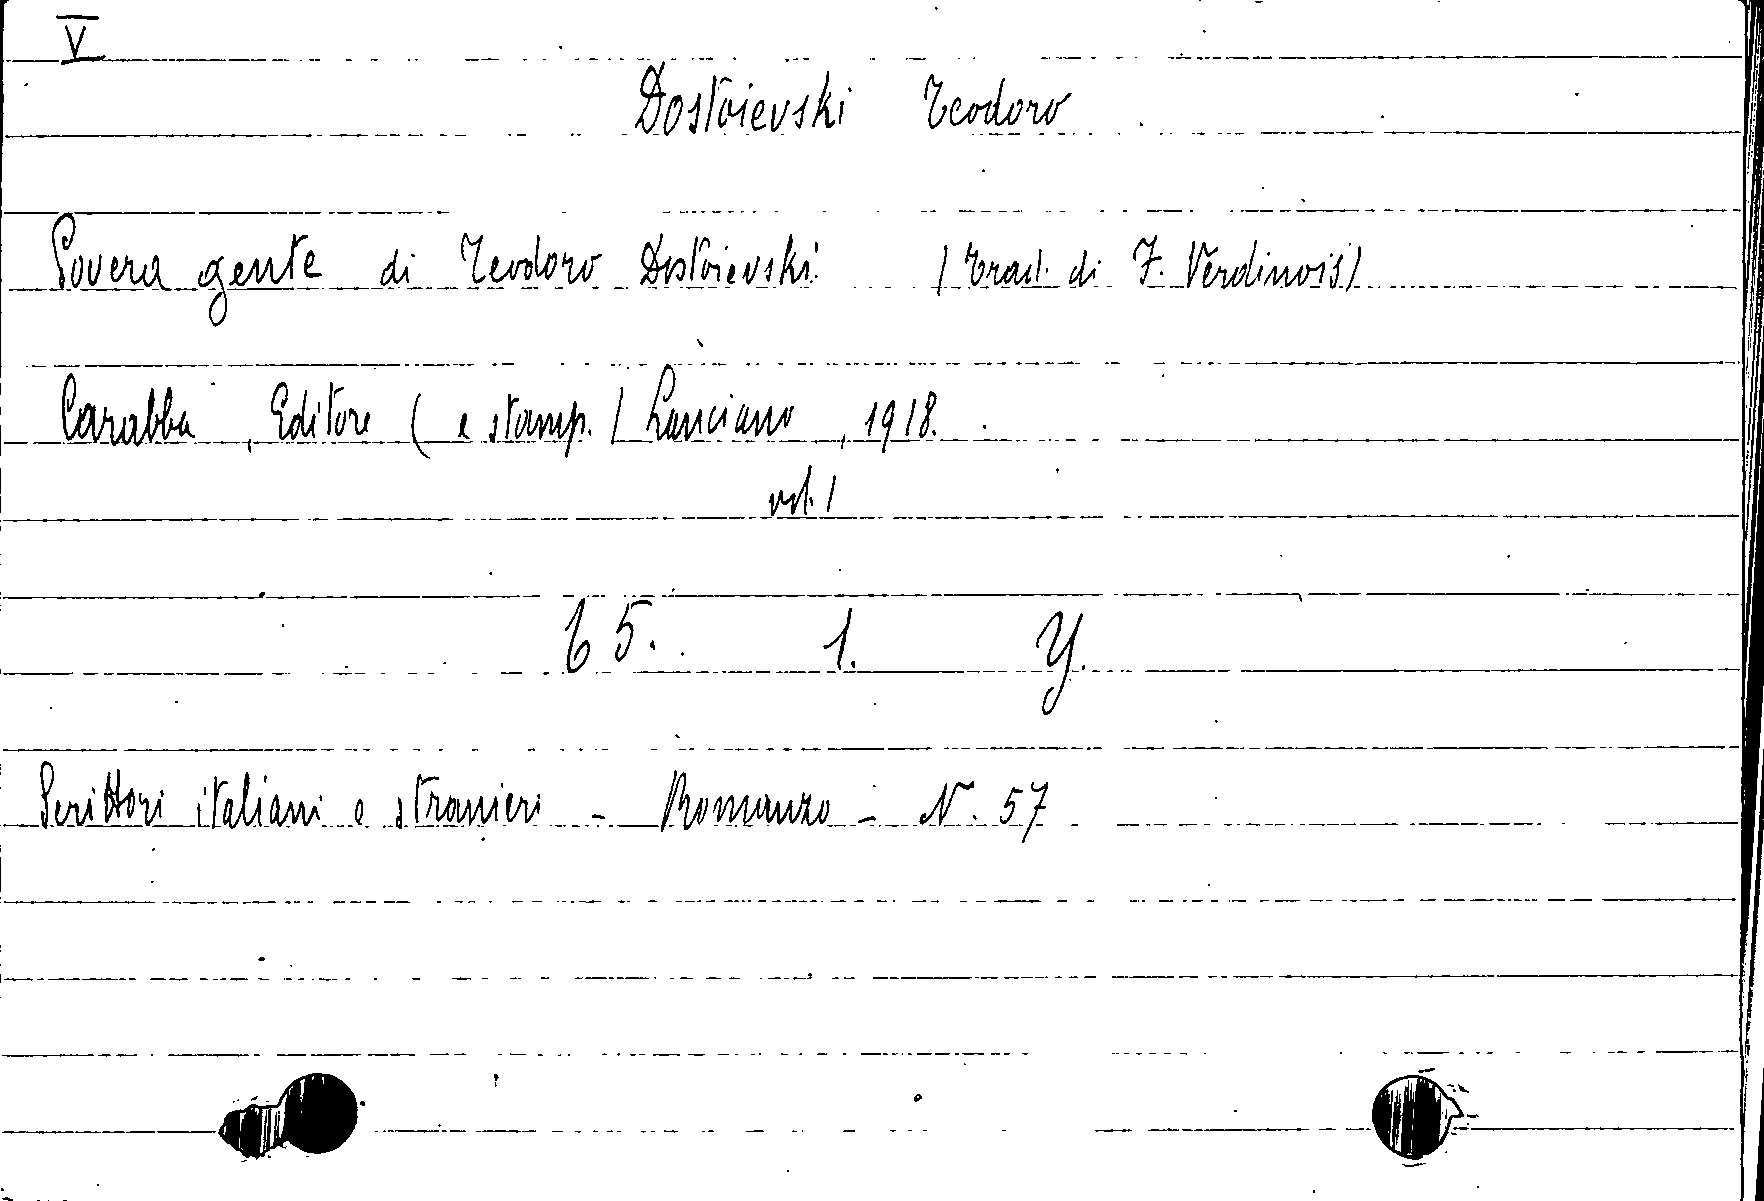 V
Dostoievski Teodoro
Povera gente di Teodoro Dostoievski (Trad. di F. Verdinois)
Carabba, Editore (e stamp.) Lanciano, 1918.
vol. 1
65. 1. Y.
Scrittori italiani e stranieri - Romanzo - N. 57